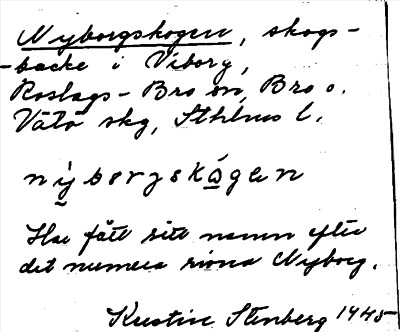 Nyborgskogen, skogs-
-backe i Viborg,
Roslags-Bro sn, Bro o.
Vätö skg, Sthlms l.
nỳborgskógen
Har fått sitt namn efter
det numera rivna Nyborg.
Kerstin Stenberg 1945